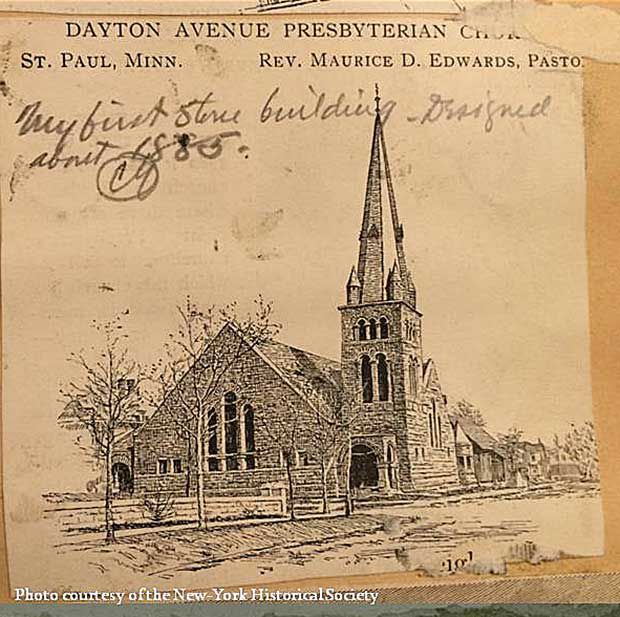 DAYTON AVENUE PRESBYTERIAN
ST. PAUL, MINN. REV. MAURICE D. EDWARDS, PASTO
My first stone building - Designed
about 1885.
CG
Photo courtesy of the New-York Historical Society